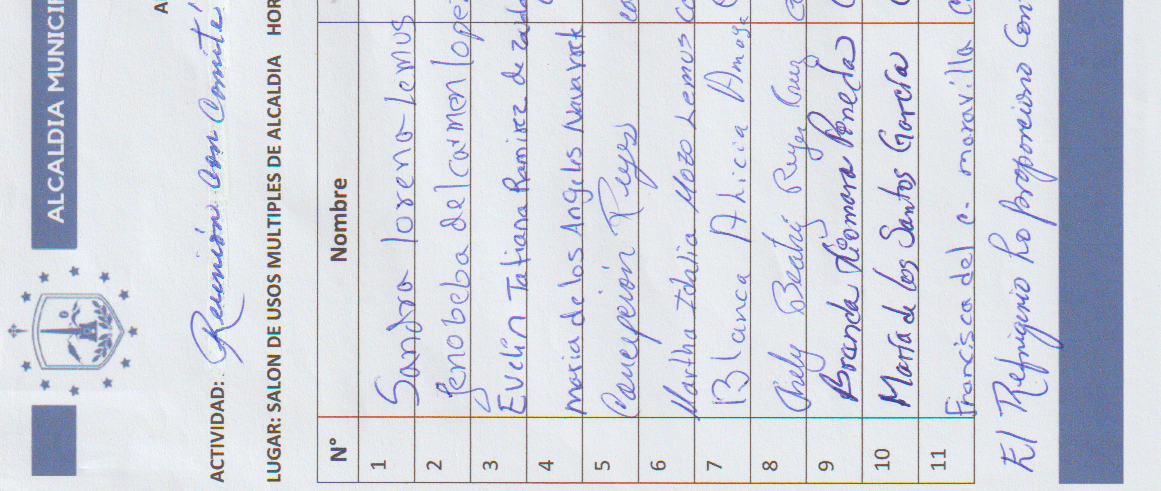 ALCALDIA MUNICIP
A
ACTIVIDAD: Reunión con Comité
LUGAR: SALON DE USOS MULTIPLES DE ALCALDIA HOR
N° Nombre
1 Sandra Lorena Lemus
2 Genobeba del Carmen Lope
3 Evelin Tatiana Ramirez de
4 Maria de los Angeles Navarrete
5 Concepción Reyes
6 Martha Idalia Mozo Lemus
7 Blanca Alicia Amaya
8 Beatriz Reyes Cruz
9 Branda Xiomara Poneda
10 María de los Santos García
11 Francisca del C. maravilla
El Refrigerio lo proporciono Con